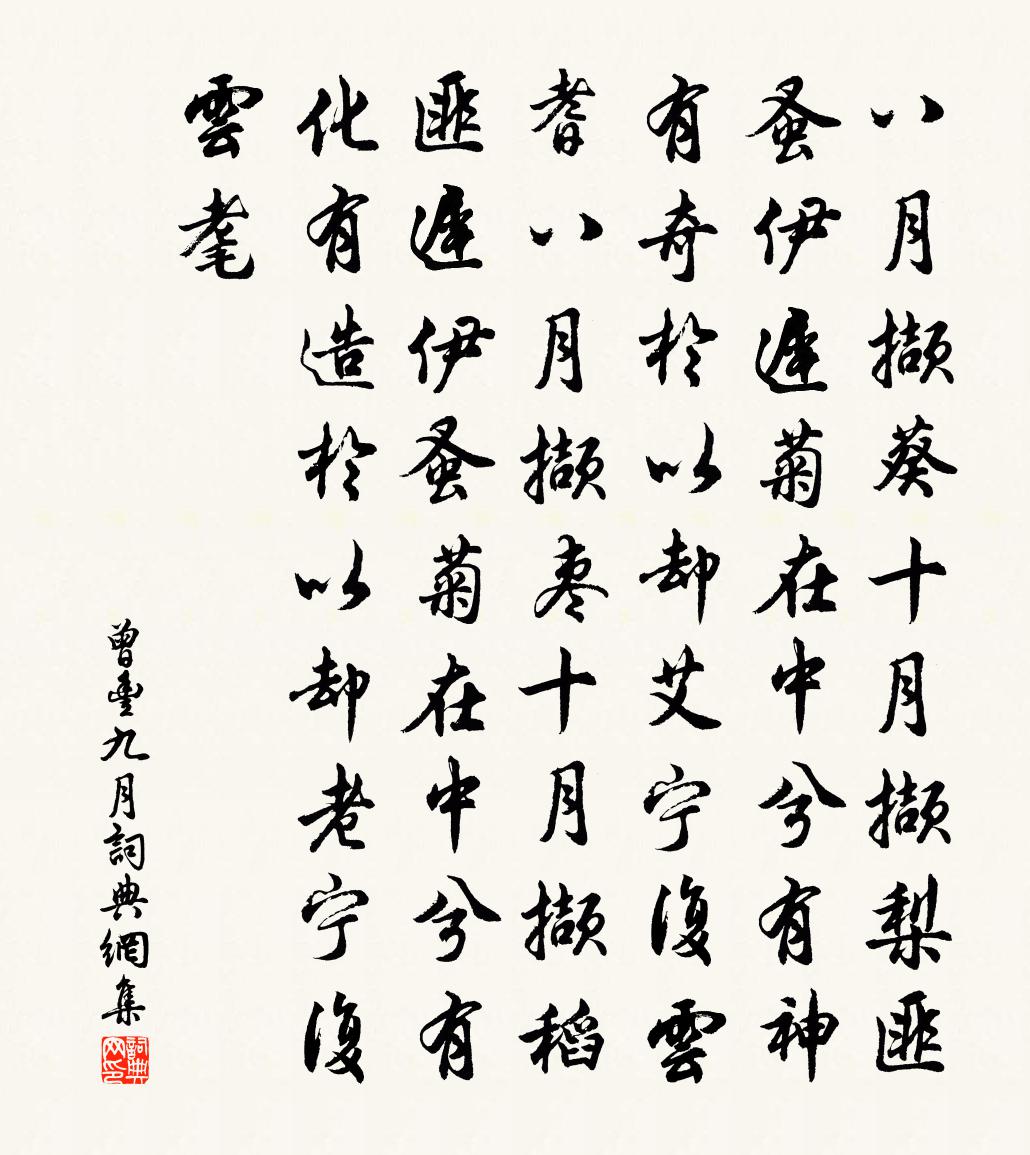 八月擷葵十月擷梨匪
蚤伊遲菊在中兮有神
有奇於以却艾宁復雲
耆八月擷枣十月擷稻
匪遲伊蚤菊在中兮有
化有造於以却老宁復
雲耄
曾豊九月詞典網集
詞典网印